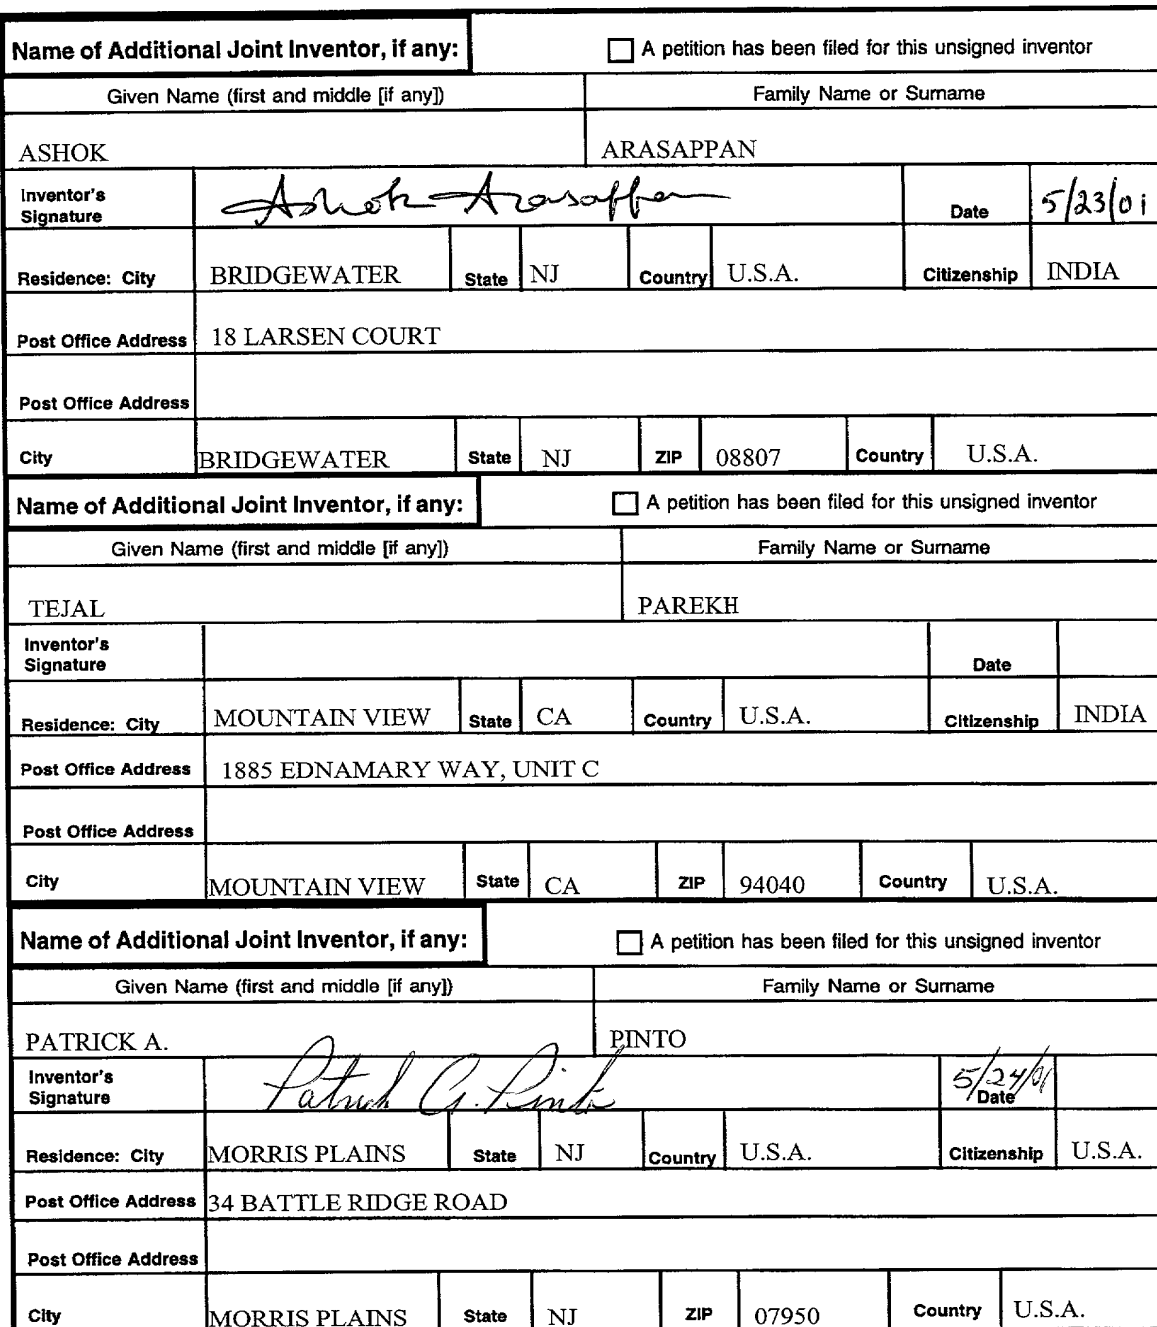 Name of Additional Joint Inventor, if any: A petition has been filed for this unsigned inventor
Given Name (first and middle [if any]) Family Name or Surname
ASHOK ARASAPPAN
Inventor's Signature Ashok Arasappan Date 5/23/01
Residence: City BRIDGEWATER State NJ Country U.S.A. Citizenship INDIA
Post Office Address 18 LARSEN COURT
Post Office Address
City BRIDGEWATER State NJ ZIP 08807 Country U.S.A.
Name of Additional Joint Inventor, if any: A petition has been filed for this unsigned inventor
Given Name (first and middle [if any]) Family Name or Surname
TEJAL PAREKH
Inventor's Signature Date
Residence: City MOUNTAIN VIEW State CA Country U.S.A. Citizenship INDIA
Post Office Address 1885 EDNAMARY WAY, UNIT C
Post Office Address
City MOUNTAIN VIEW State CA ZIP 94040 Country U.S.A.
Name of Additional Joint Inventor, if any: A petition has been filed for this unsigned inventor
Given Name (first and middle [if any]) Family Name or Surname
PATRICK A. PINTO
Inventor's Signature Patrick A. Pinto 5/24/01 Date
Residence: City MORRIS PLAINS State NJ Country U.S.A. Citizenship U.S.A.
Post Office Address 34 BATTLE RIDGE ROAD
Post Office Address
City MORRIS PLAINS State NJ ZIP 07950 Country U.S.A.